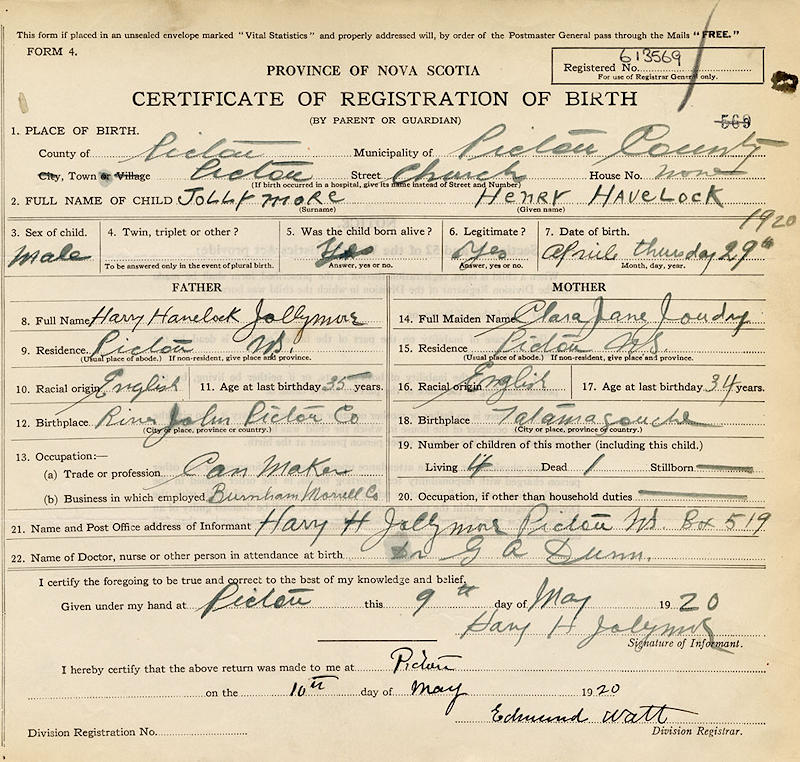 This form if placed in an unsealed envelope marked "Vital Statistics" and properly addressed will, by order of the Postmaster General pass through the Mails "FREE."
FORM 4.
Registered No. 613569
For use of Registrar General only.
PROVINCE OF NOVA SCOTIA
CERTIFICATE OF REGISTRATION OF BIRTH
(BY PARENT OR GUARDIAN)
569
1. PLACE OF BIRTH.
County of Pictou Municipality of Pictou County
City, Town or Village Pictou Street Church House No. none
(If birth occurred in a hospital, give its name instead of Street and Number)
2. FULL NAME OF CHILD JOLLYMORE HENRY HAVELOCK
(Surname) (Given name)
3. Sex of child. 4. Twin, triplet or other? 5. Was the child born alive? 6. Legitimate? 7. Date of birth. 1920
Male Yes Yes Aprile thursday 29th
To be answered only in the event of plural birth. Answer, yes or no. Answer, yes or no. Month, day, year.
FATHER MOTHER
8. Full Name Harry Havelock Jollymore 14. Full Maiden Name Clara Jane Joudry
9. Residence Pictou NS. 15. Residence Pictou NS.
(Usual place of abode.) If non-resident, give place and province. (Usual place of abode.) If non-resident, give place and province.
10. Racial origin English 11. Age at last birthday 35 years. 16. Racial origin English 17. Age at last birthday 34 years.
12. Birthplace River John Pictou Co 18. Birthplace Tatamagouche
(City or place, province or country.) (City or place, province or country.)
13. Occupation:— 19. Number of children of this mother (including this child.)
(a) Trade or profession Can Maker Living 4 Dead 1 Stillborn
(b) Business in which employed Burnham Morrell Co 20. Occupation, if other than household duties
21. Name and Post Office address of Informant Harry H Jollymore Pictou NS. Box 519
22. Name of Doctor, nurse or other person in attendance at birth Dr G A Dunn.
I certify the foregoing to be true and correct to the best of my knowledge and belief.
Given under my hand at Pictou this 9th day of May 1920
Harry H Jollymore
Signature of Informant.
I hereby certify that the above return was made to me at Pictou
on the 10th day of May 1920
Edmund Watt
Division Registration No. Division Registrar.